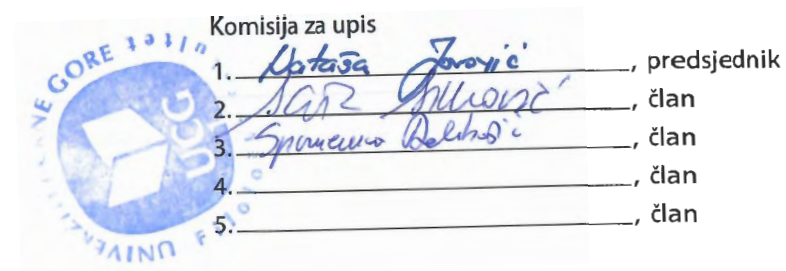 Komisija za upis
1. Nataša Jovović, predsjednik
2. , član
3. Spomenka Delibašić, član
4. , član
5. , član
UNIVERZITET CRNE GORE
UCG